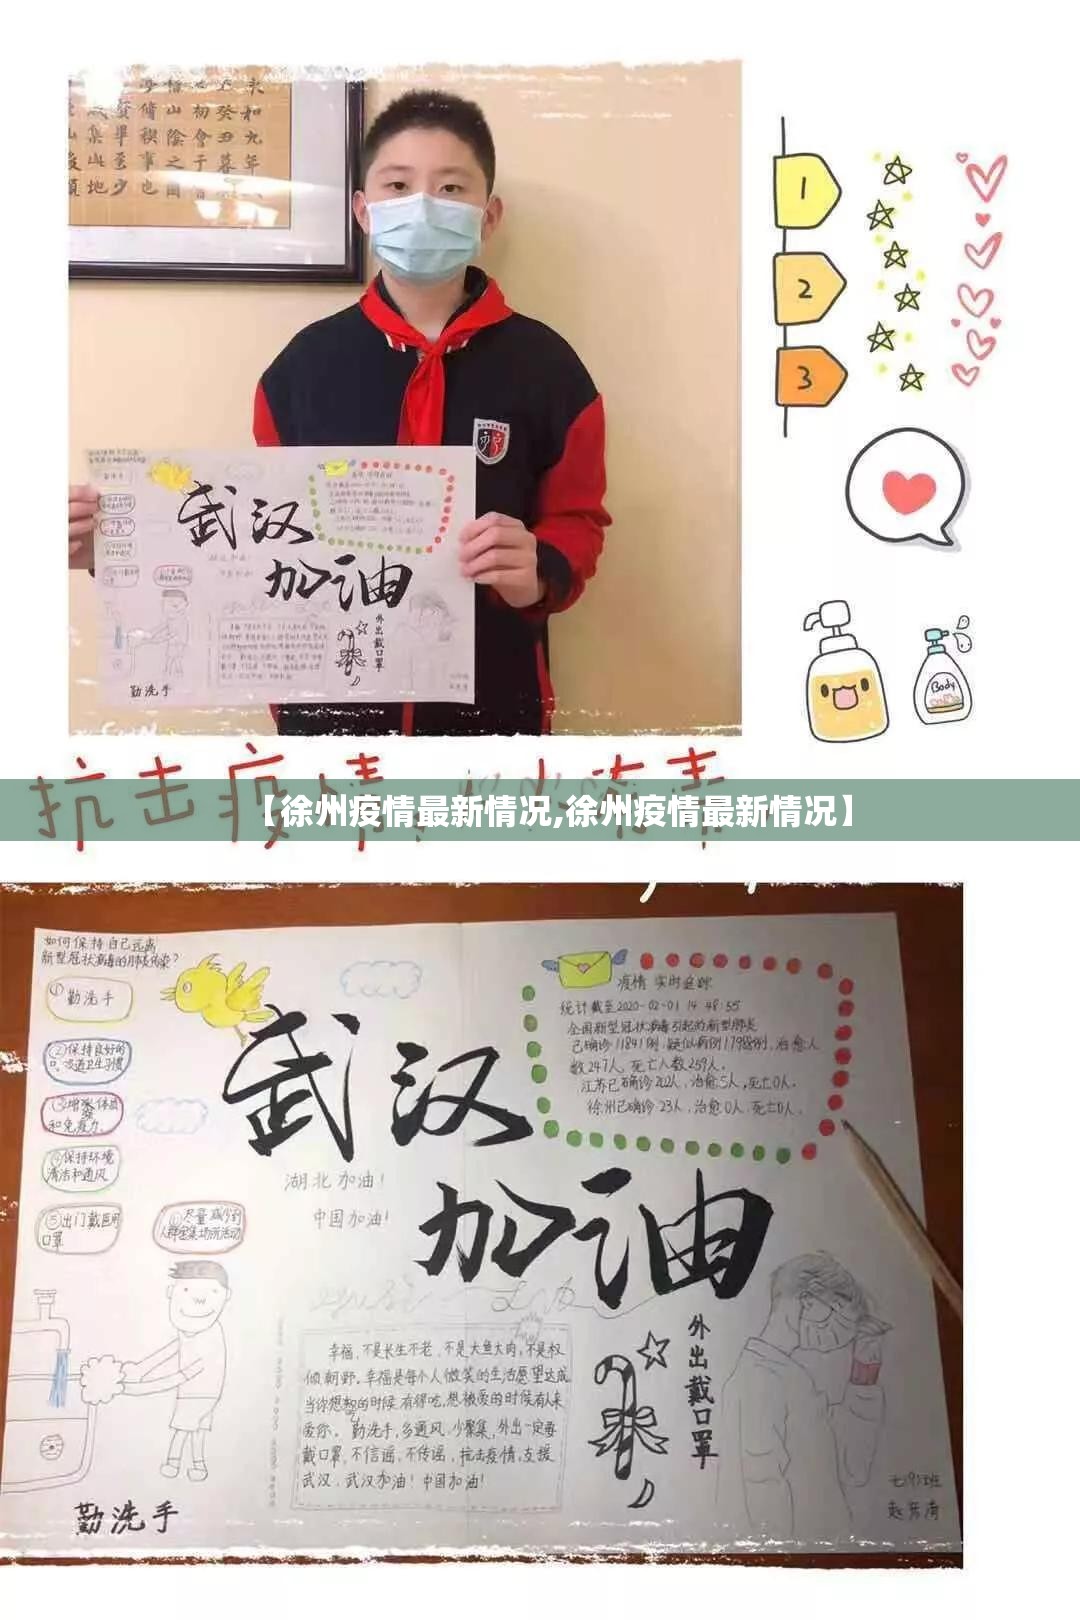 1
2
3
武汉
加油
外出戴口罩
勤洗手
Body
抗击疫情
【徐州疫情最新情况,徐州疫情最新情况】
如何保持自己远离
新型冠状病毒的肺炎传染？
①勤洗手
②保持良好的
呼吸道卫生习惯
③增强体质
和免疫力.
④保持环境
清洁和通风
⑤出门戴医用
口罩
⑥尽量减少到
人群密集场所活动
武汉
加油
湖北加油！
中国加油！
疫情 实时追踪
统计截至2020-02-01 14:48:55
全国新型冠状病毒引起的新型肺炎
已确诊11841例,疑似病例17988例,治愈人
数247人,死亡人数259人.
江苏已确诊202人,治愈5人,死亡0人.
徐州已确诊23人,治愈0人,死亡0人.
幸福,不是长生不老,不是大鱼大肉,不是权
倾朝野.幸福是每个人微笑的生活愿望达成
当你想吃的时候有得吃,想被爱的时候有人来
爱你。勤洗手,多通风,少聚集,外出一定要
戴口罩,不信谣,不传谣,抗击疫情,支援
武汉.武汉加油！中国加油！
外出戴口罩
勤洗手
七(9)班